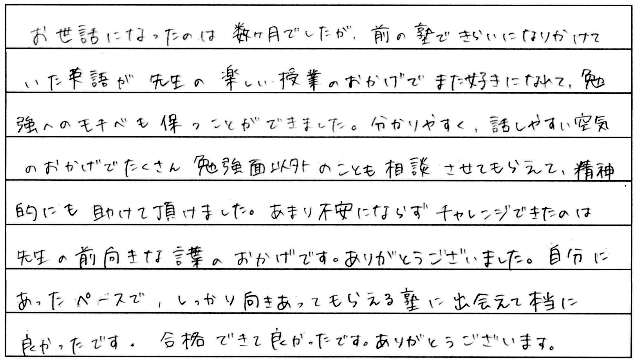 お世話になったのは数ヶ月でしたが、前の塾できらいになりかけて
いた英語が先生の楽しい授業のおかげでまた好きになれて、勉
強へのモチベも保つことができました。分かりやすく、話しやすい空気
のおかげでたくさん勉強面以外のことも相談させてもらえて、精神
的にも助けて頂けました。あまり不安にならずチャレンジできたのは
先生の前向きな言葉のおかげです。ありがとうございました。自分に
あったペースで、しっかり向きあってもらえる塾に出会えて本当に
良かったです。合格できて良かったです。ありがとうございます。